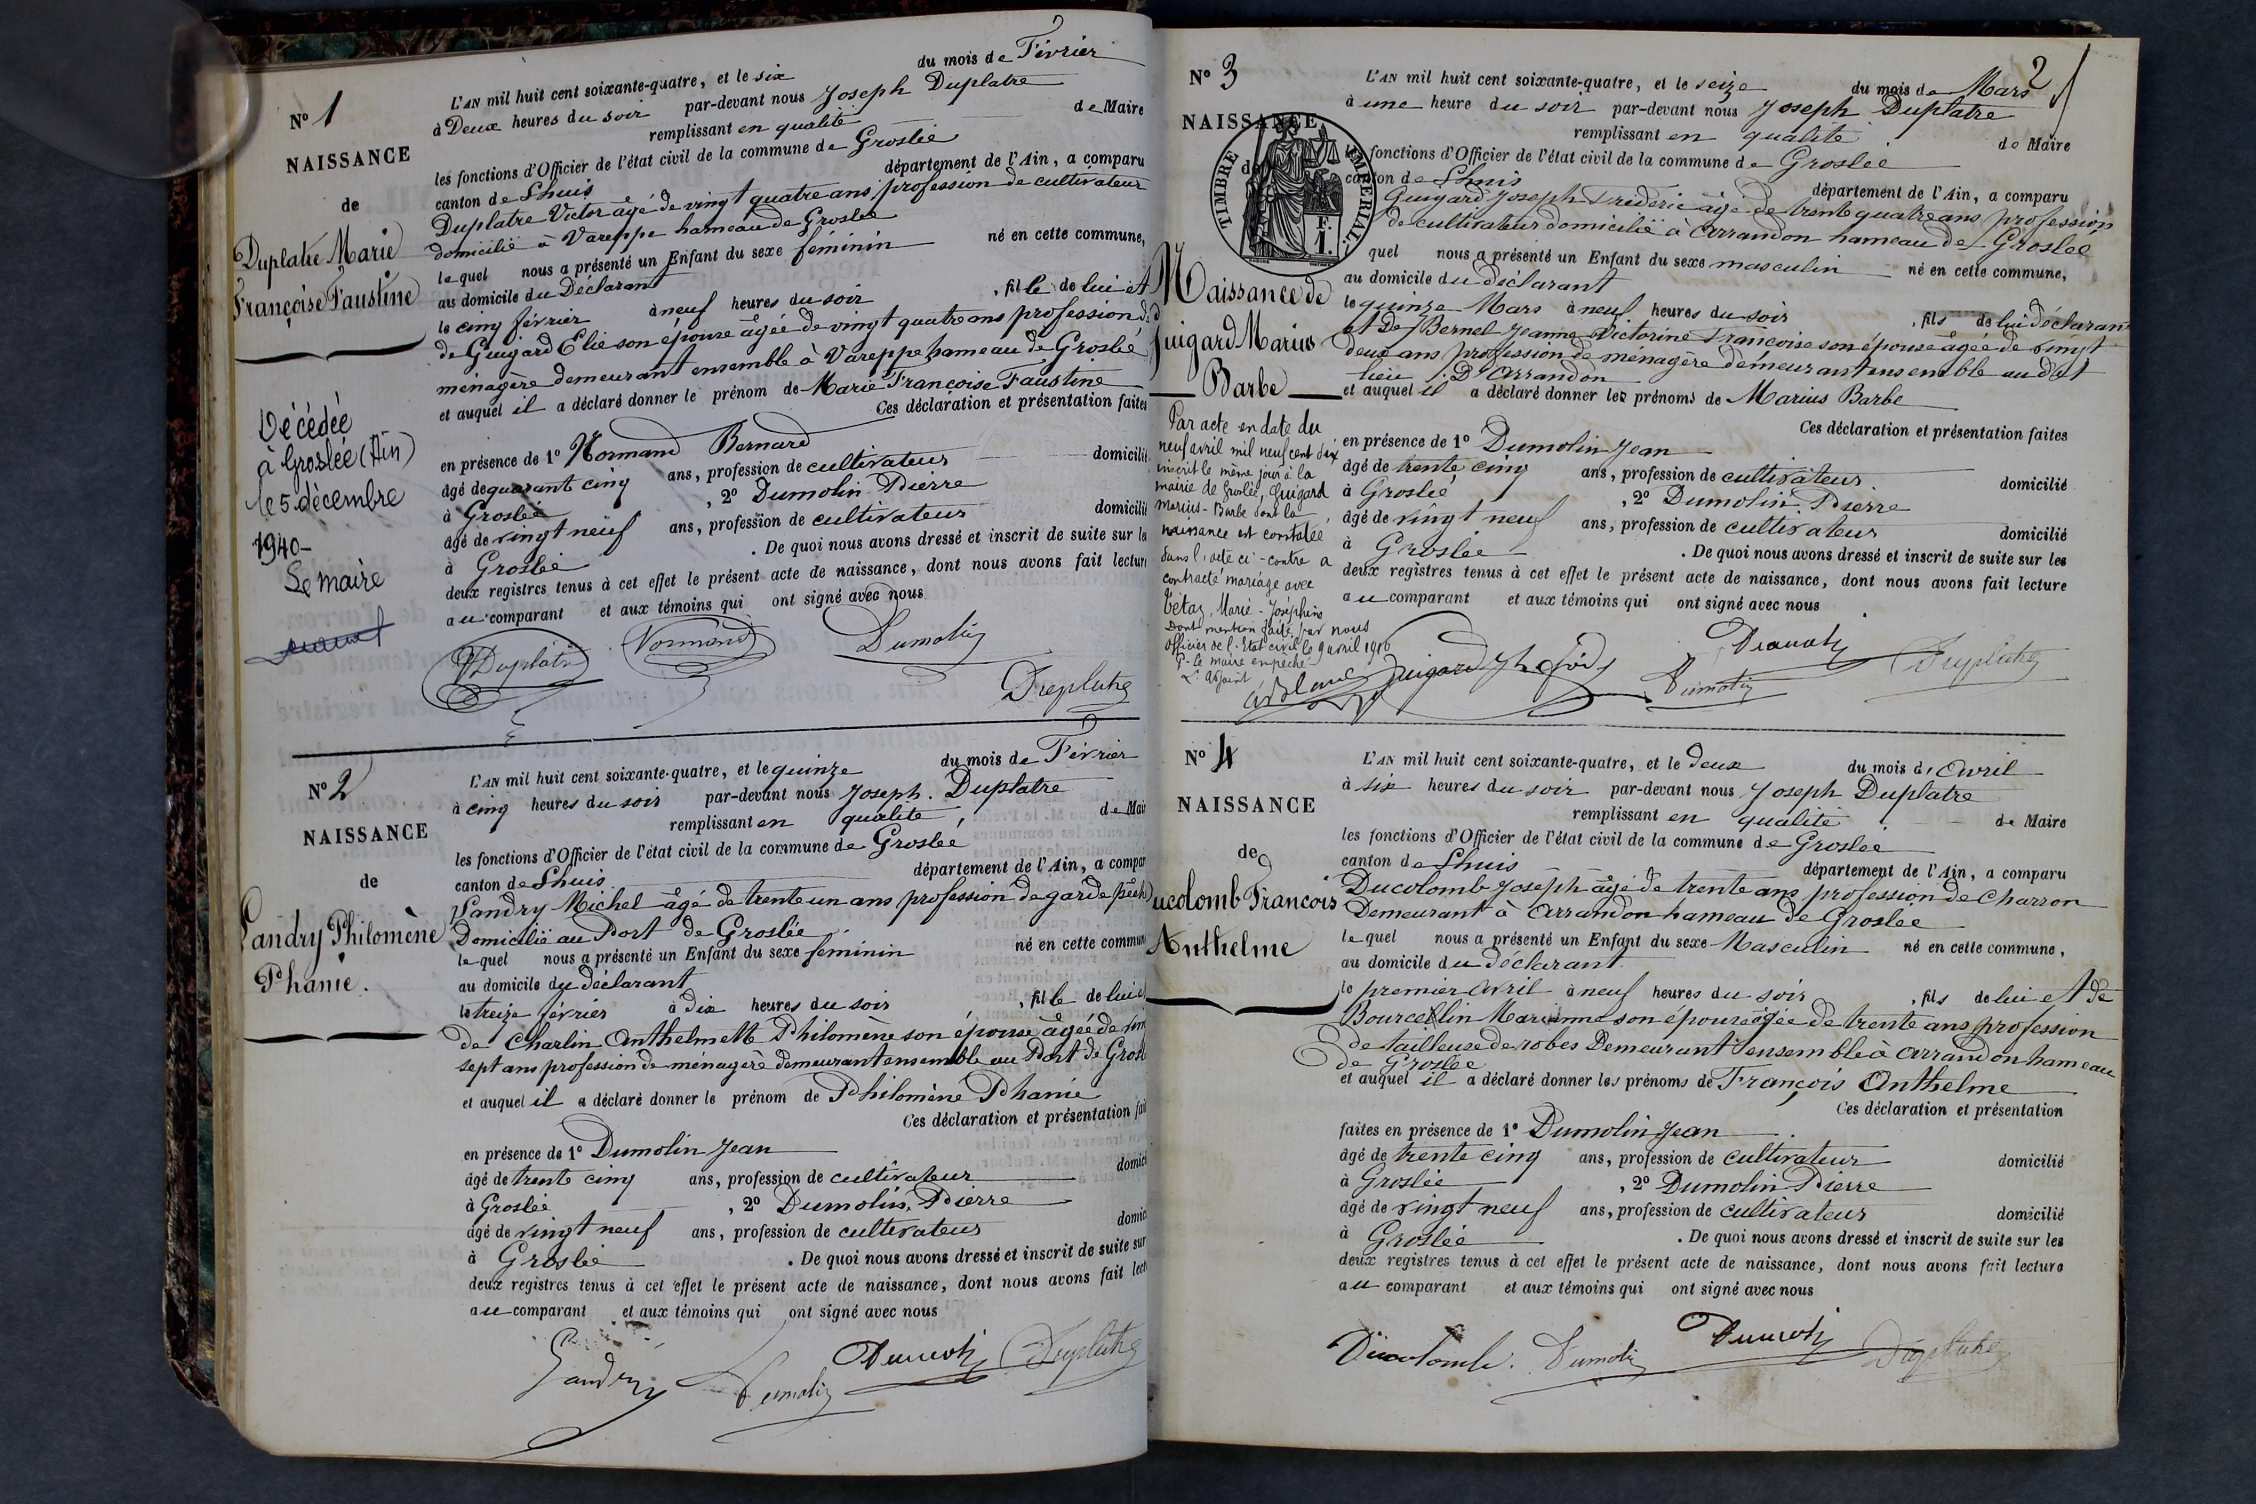 du mois de Février
L'AN mil huit cent soixante-quatre, et le six
à Deux heures du soir par-devant nous Joseph Duplatre
remplissant en qualité de Maire
les fonctions d'Officier de l'état civil de la commune de Groslée
canton de Lhuis département de l'Ain, a comparu
Duplatre Victor âgé de vingt quatre ans profession de cultivateur
domicilié à Vareppe hameau de Groslée
lequel nous a présenté un Enfant du sexe féminin né en cette commune,
au domicile du Déclarant
le cinq février à neuf heures du soir, fille de lui et
de Guigard Elie son épouse âgée de vingt quatre ans profession de
ménagère demeurant ensemble à Vareppe hameau de Groslée
et auquel il a déclaré donner le prénom de Marie Françoise Faustine
Ces déclaration et présentation faites
en présence de 1º Normand Bernard
âgé de quarant cinq ans, profession de cultivateur domicilié
à Groslée, 2º Dumolin Pierre
âgé de vingt neuf ans, profession de cultivateur domicilié
à Groslée. De quoi nous avons dressé et inscrit de suite sur les
deux registres tenus à cet effet le présent acte de naissance, dont nous avons fait lecture
au comparant et aux témoins qui ont signé avec nous
Duplatre Normand Dumolin
Duplatre
Nº 1
NAISSANCE
de
Duplatre Marie
Françoise Faustine
Décédée
à Groslée (Ain)
le 5 décembre
1940-
Le maire
Nº 2
NAISSANCE
de
Landry Philomène
Phanie.
L'AN mil huit cent soixante-quatre, et le quinze du mois de Février
à cinq heures du soir par-devant nous Joseph Duplatre
remplissant en qualité de Mai
les fonctions d'Officier de l'état civil de la commune de Groslée
canton de Lhuis département de l'Ain, a compar
Landry Michel âgé de trente un ans profession de garde pêche
Domicilié au Port de Groslée
lequel nous a présenté un Enfant du sexe féminin né en cette commun
au domicile du déclarant
le treize février à dix heures du soir, fille de lui et
de Charlin Anthelmette Philomène son épouse âgée de
sept ans profession de ménagère demeurant ensemble au Port de Grosl
et auquel il a déclaré donner le prénom de Philomène Phanie
Ces déclaration et présentation fai
en présence de 1º Dumolin Jean
âgé de trente cinq ans, profession de cultivateur domici
à Groslée, 2º Dumolin Pierre
âgé de vingt neuf ans, profession de cultivateur domici
à Groslée. De quoi nous avons dressé et inscrit de suite sur
deux registres tenus à cet effet le présent acte de naissance, dont nous avons fait lect
au comparant et aux témoins qui ont signé avec nous
Landry Dumolin Dumolin Duplatre
2
Nº 3
NAISSANCE
de
TIMBRE IMPERIAL
F.
1.
Naissance de
Guigard Marius
Barbe
Par acte en date du
neuf avril mil neuf cent dix
inscrit le même jour à la
mairie de Groslée, Guigard
Marius-Barbe dont la
naissance est constatée
dans l'acte ci-contre a
contracté mariage avec
Tétaz Marie-Joséphine
Dont mention faite par nous
officier de l'Etat civil le 9 avril 1910
P. Le maire empêché
L'adjoint
L'AN mil huit cent soixante-quatre, et le seize du mois de Mars
à une heure du soir par-devant nous Joseph Duplatre
remplissant en qualité de Maire
fonctions d'Officier de l'état civil de la commune de Groslée
canton de Lhuis département de l'Ain, a comparu
Guigard Joseph Fréderic âgé de trente quatre ans profession
de cultivateur domicilié à Arrandon hameau de Groslée
quel nous a présenté un Enfant du sexe masculin né en cette commune,
au domicile du déclarant
le quinze Mars à neuf heures du soir, fils de lui déclarant
et De Bernel Jeanne Victorine Francoise son épouse âgée de vingt
deux ans profession de ménagère demeurant ensemble au dit
lieu D'Arrandon
et auquel il a déclaré donner les prénoms de Marius Barbe
Ces déclaration et présentation faites
en présence de 1º Dumolin Jean
âgé de trente cinq ans, profession de cultivateur domicilié
à Groslée, 2º Dumolin Pierre
âgé de vingt neuf ans, profession de cultivateur domicilié
à Groslée. De quoi nous avons dressé et inscrit de suite sur les
deux registres tenus à cet effet le présent acte de naissance, dont nous avons fait lecture
au comparant et aux témoins qui ont signé avec nous
Dumolin Dumolin Duplatre
Nº 4
NAISSANCE
de
ucolomb Francois
Anthelme
L'AN mil huit cent soixante-quatre, et le deux du mois d'Avril
à six heures du soir par-devant nous Joseph Duplatre
remplissant en qualité de Maire
les fonctions d'Officier de l'état civil de la commune de Groslée
canton de Lhuis département de l'Ain, a comparu
Ducolomb Joseph âgé de trente ans profession de Charron
Demeurant à Arrandon hameau de Groslée
lequel nous a présenté un Enfant du sexe Masculin né en cette commune,
au domicile du déclarant
le premier Avril à neuf heures du soir, fils de lui et de
Bourcelin Marianne son épouse âgée de trente ans profession
de tailleuse de robes Demeurant ensemble à Arrandon hameau
de Groslée
et auquel il a déclaré donner les prénoms de François Anthelme
Ces déclaration et présentation
faites en présence de 1º Dumolin Jean
âgé de trente cinq ans, profession de cultivateur domicilié
à Groslée, 2º Dumolin Pierre
âgé de vingt neuf ans, profession de cultivateur domicilié
à Groslée. De quoi nous avons dressé et inscrit de suite sur les
deux registres tenus à cet effet le présent acte de naissance, dont nous avons fait lecture
au comparant et aux témoins qui ont signé avec nous
Ducolomb. Dumolin Dumolin Duplatre